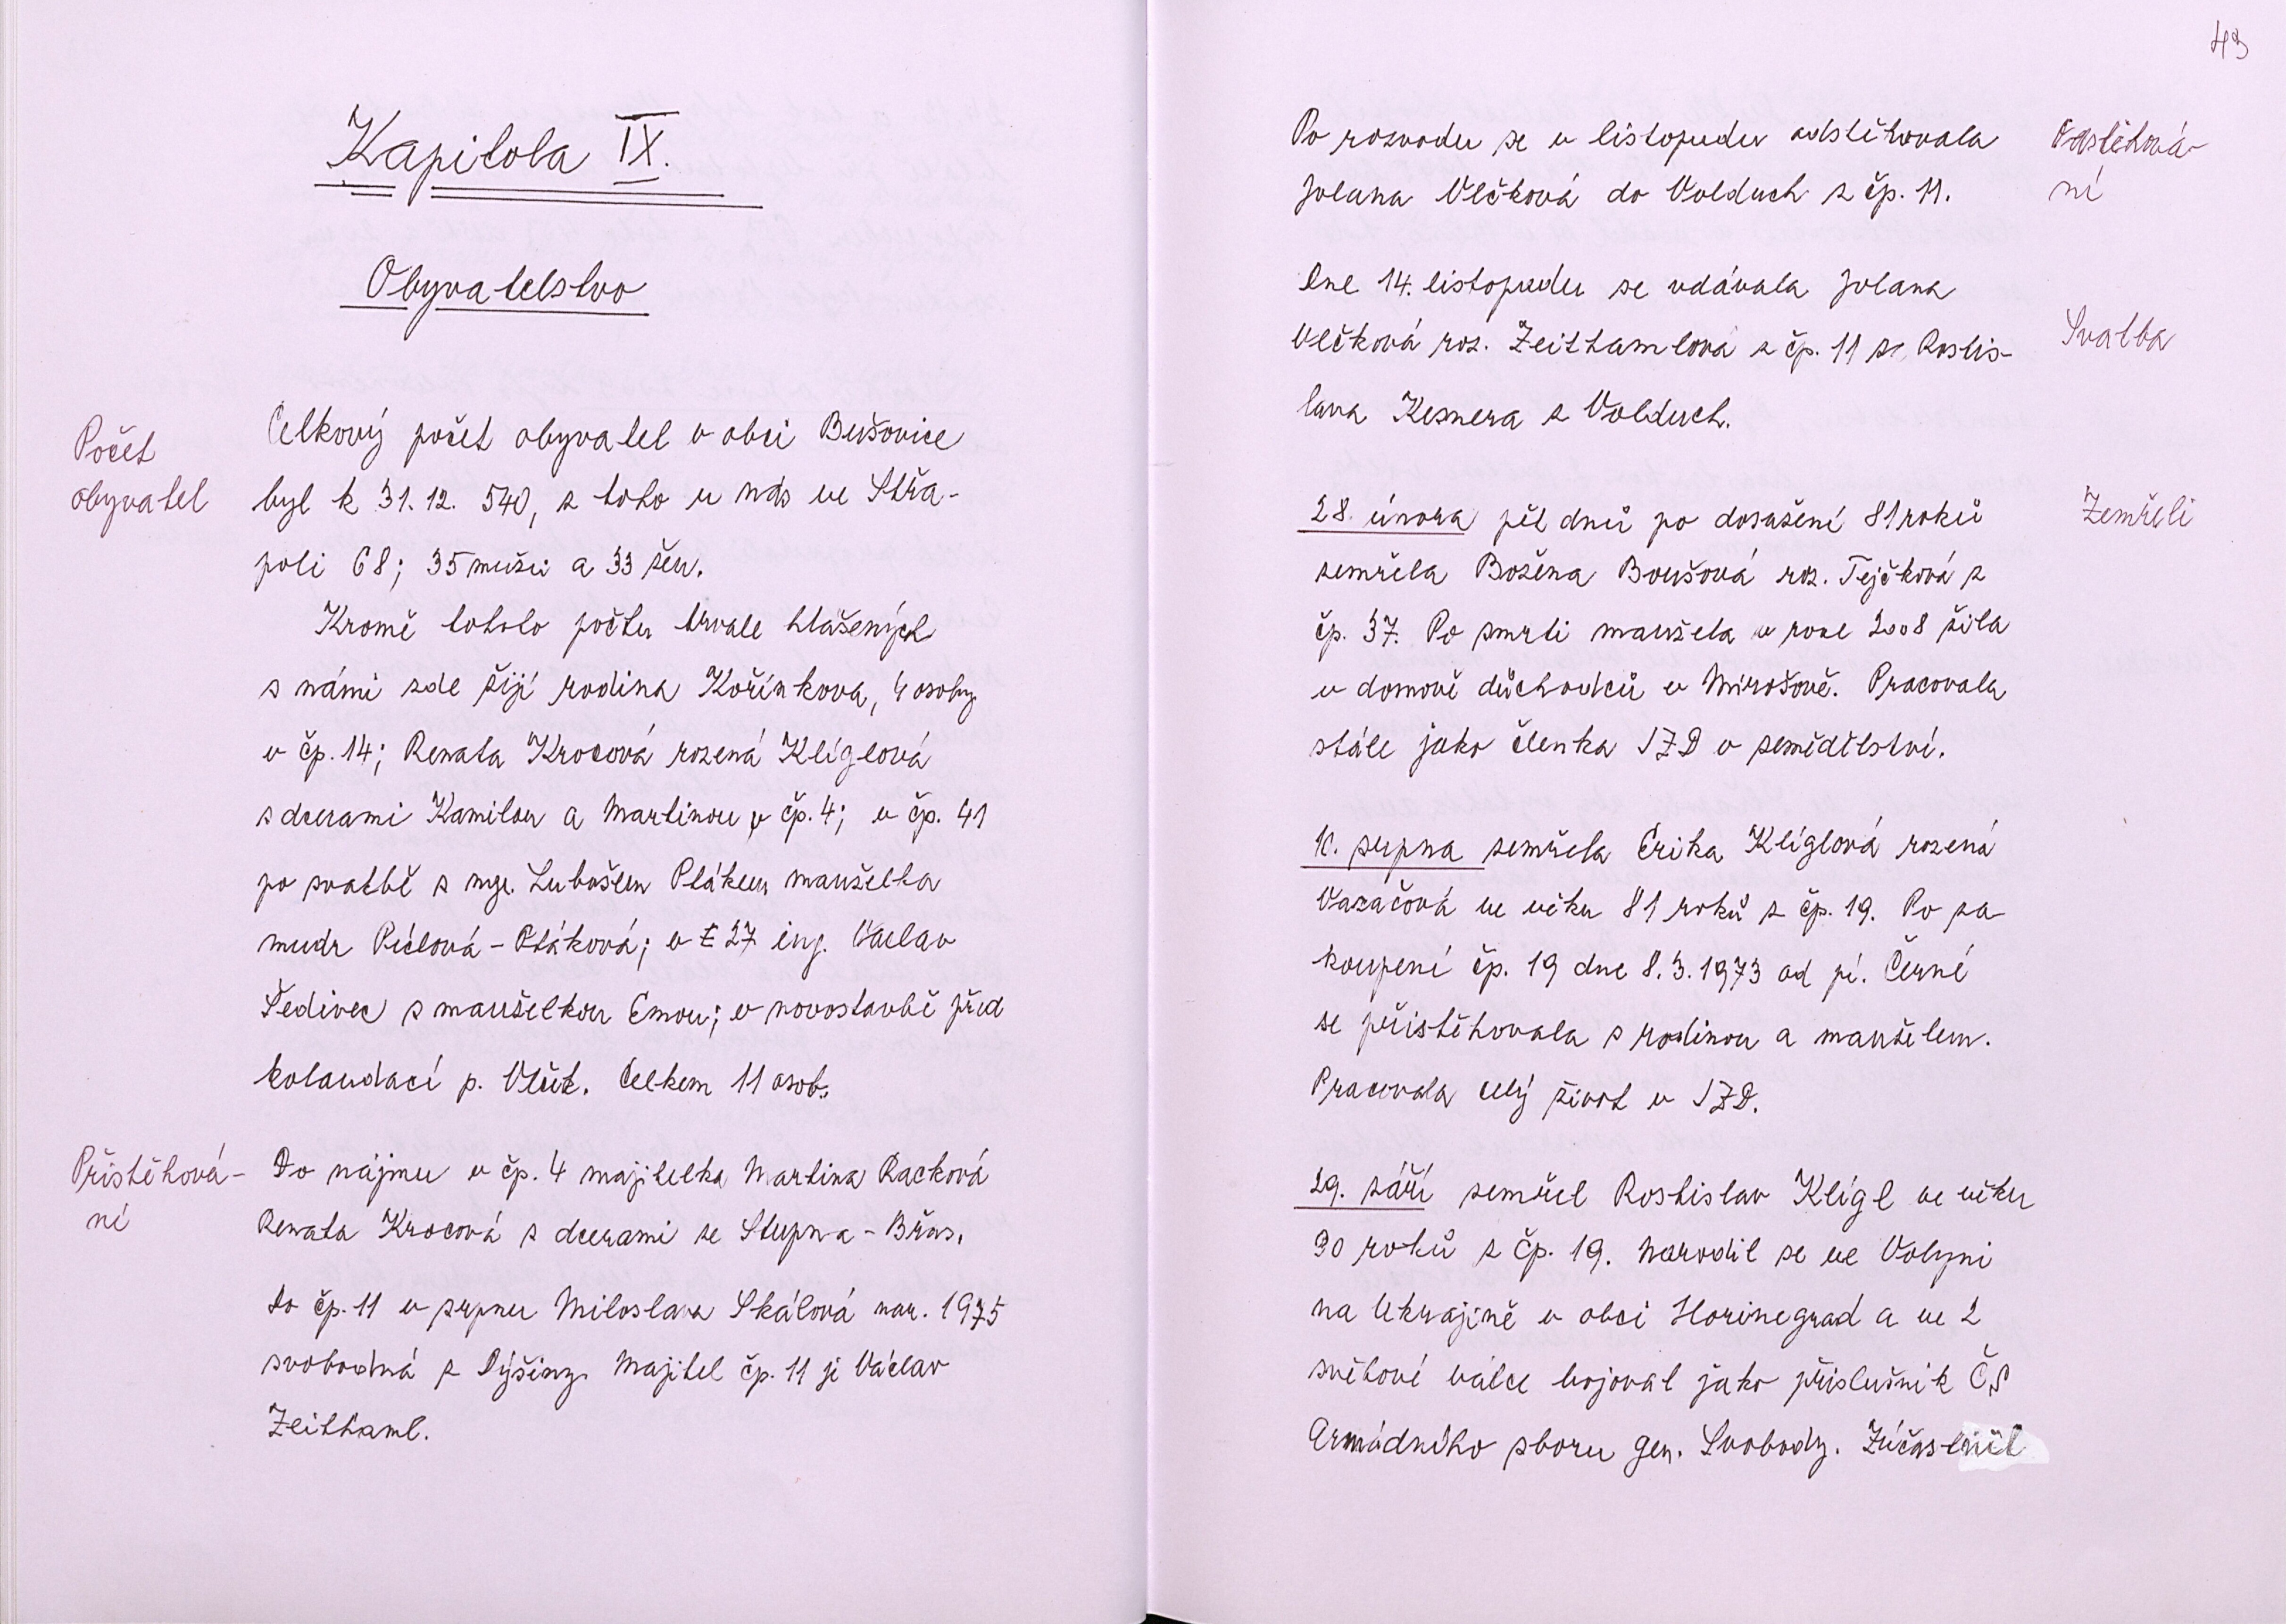 Kapitola IX.
Obyvatelstvo
Počet
obyvatel
Celkový počet obyvatel v obci Bušovice
byl k 31.12. 540, z toho u nás ve Střa-
poli 68; 35 mužů a 33 žen.
Kromě tohoto počtu trvale hlášených
s námi zde žijí rodina Kořínkova, 4 osoby
v čp. 14; Renata Krocová rozená Klíglová
s dcerami Kamilou a Martinou v čp. 4; v čp. 41
po svatbě s mgr. Lubošem Ptákem manželka
mudr Píclová - Ptáková; v E 27 ing. Václav
Šedivec s manželkou Emou; v novostavbě před
kolaudací p. Vlček. Celkem 11 osob.
Přistěhová-
ní
Do nájmu v čp. 4 majitelka Martina Racková
Renata Krocová s dcerami ze Stupna - Břas.
Do čp. 11 v srpnu Miloslava Skálová nar. 1975
svobodná z Dýšiny. Majitel čp. 11 je Václav
Zeithaml.
43
Po rozvodu se v listopadu odstěhovala
Jolana Vlčková do Volduch z čp. 11.
Odstěhová-
ní
Dne 14. listopadu se vdávala Jolana
Vlčková roz. Zeithamlová z čp. 11 za Rostis-
lava Kesnera z Volduch.
Svatba
28. února pět dnů po dosažení 81 roků
zemřela Božena Boušová roz. Tejčková z
čp. 37. Po smrti manžela v roce 2008 žila
v domově důchodců v Mirošově. Pracovala
stále jako členka JZD v zemědělství.
Zemřeli
10. srpna zemřela Erika Klíglová rozená
Vazačová ve věku 81 roků z čp. 19. Po za-
koupení čp. 19 dne 8.3.1973 od pí. Černé
se přistěhovala s rodinou a manželem.
Pracovala celý život v JZD.
29. září zemřel Rostislav Klígl ve věku
90 roků z čp. 19. Narodil se ve Volyni
na Ukrajině v obci Horinegrad a ve 2
světové válce bojoval jako příslušník ČS
Armádního sboru gen. Svobody. Zúčastnil